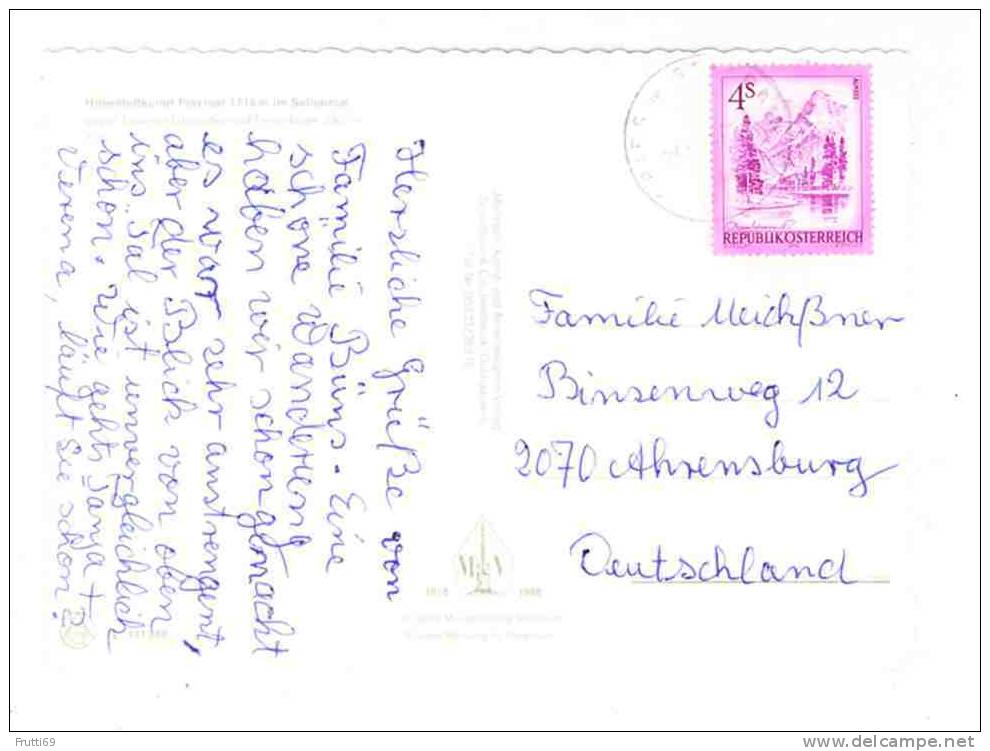 Herzliche Grüße von
Familie Büns. Eine
schöne Wanderung
haben wir schon gemacht
es war sehr anstrengent,
aber der Blick von oben
ins Tal ist unvergleichlich
schön. Wie gehts Tanja +
Verena, läuft Sie schon?
4S
ALMSEE
REPUBLIK ÖSTERREICH
Familie Meichßner
Binsenweg 12
2070 Ahrensburg
Deutschland
1818 1968
Frutti69